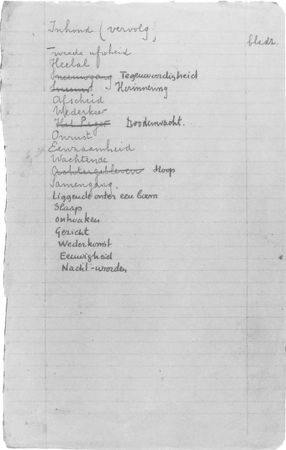 Inhoud (vervolg)
bladz.
Twede afscheid
Heelal
Tegenwoordigheid
Herinnering
Afscheid
Wederkeer
Het Leger Doodenwacht.
Onrust
Eenzaamheid
Wachtende
Achtergebleven Hoop
Samengang.
Liggende onter een boom
Slaap
Ontwaken
Gezicht
Wederkomst
Eeuwigheid
Nacht-woorden